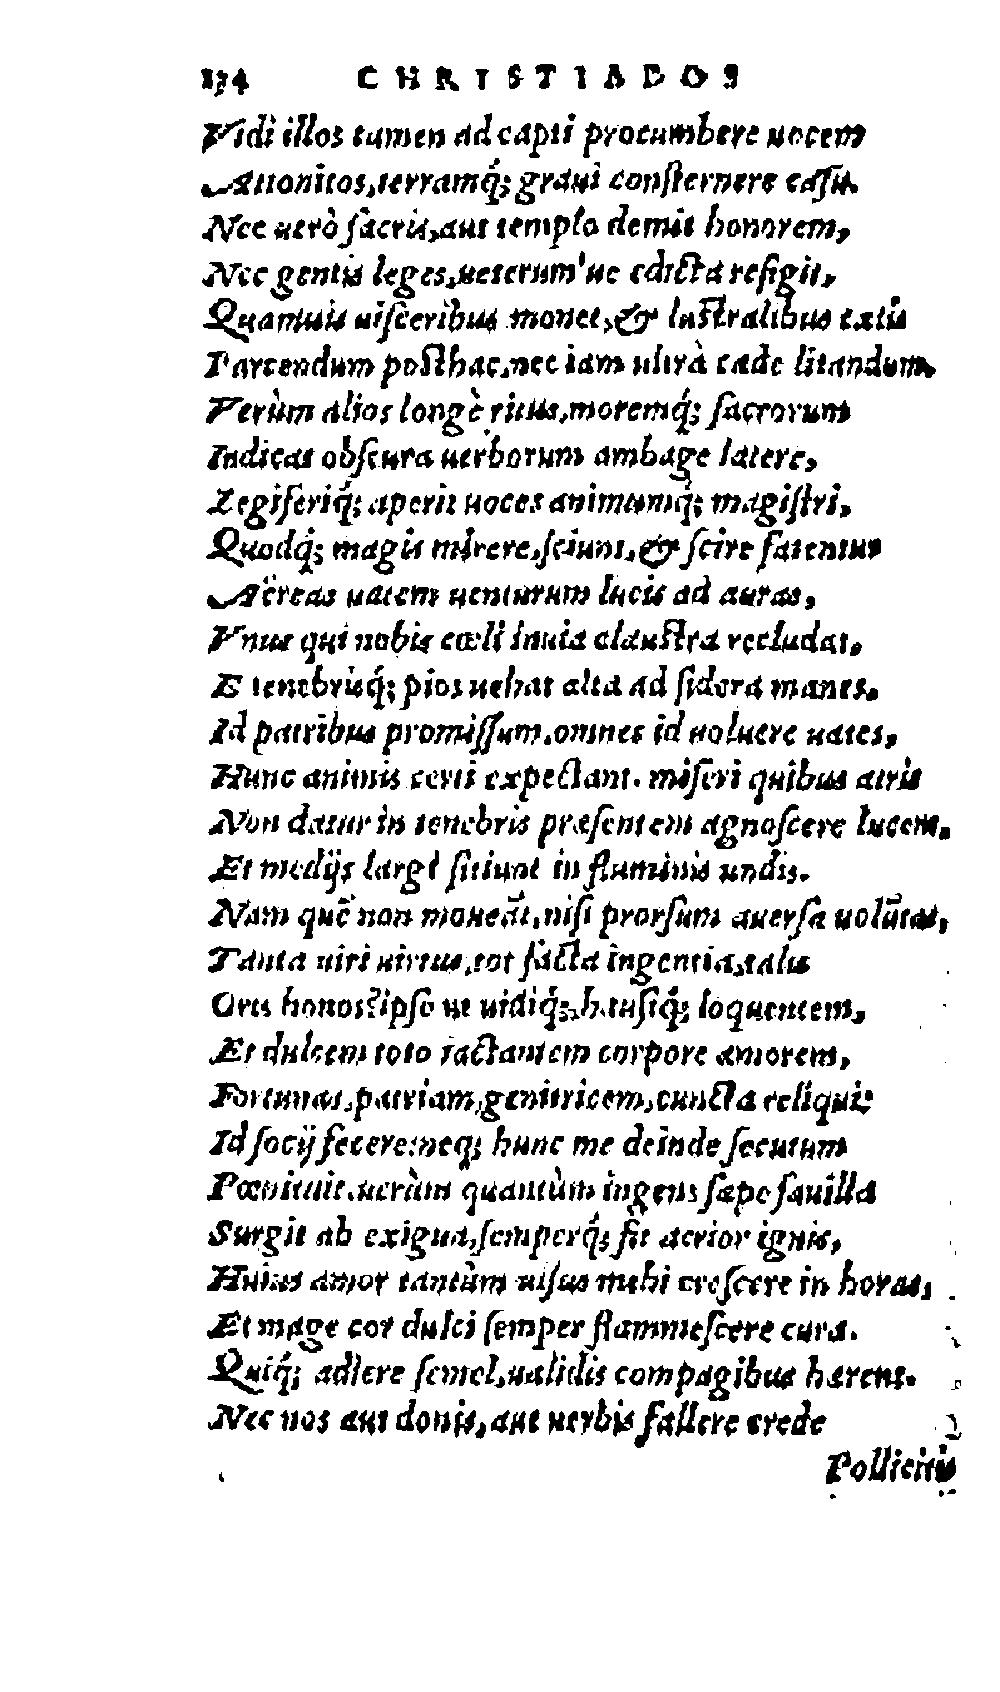 134 CHRISTIADOS
Vidi illos tamen ad capti procumbere uocem
Attonitos, terramq́; graui consternere casu.
Nec uerò sacris, aut templo demit honorem,
Nec gentis leges, ueterum'ue edicta refigit,
Quamuis uisceribus monet, & lustralibus extis
Parcendum posthac, nec iam ultrà cæde litandum.
Verùm alios longè ritus, moremq́; sacrorum
Indicat obscura uerborum ambage latere,
Legiferiq́; aperit uoces animumq́; magistri,
Quodq́; magis mirere, sciunt, & scire fatentur
Aëreas uatem uenturum lucis ad auras,
Vnus qui nobis cœli inuia claustra recludat,
E tenebrisq́; pios uehat alta ad sidera manes.
Id patribus promissum, omnes id uoluere uates,
Hunc animis certi expectant. miseri quibus atris
Non datur in tenebris præsentem agnoscere lucem.
Et medijs largi sitiunt in fluminis undis.
Nam quē non moueāt, nisi prorsum auersa uolūtas,
Tanta uiri uirtus, tot facta ingentia, talis
Oris honos? ipse ut uidiq́;, hausiq́; loquentem,
Et dulcem toto iactantem corpore amorem,
Fortunas, patriam, genitricem, cuncta reliqui:
Id socij fecere: neq; hunc me deinde secutum
Pœnituit. uerùm quantùm ingens sæpe fauilla
Surgit ab exigua, semperq́; fit acrior ignis,
Huius amor tantùm uisus mihi crescere in horas,
Et mage cor dulci semper flammescere cura.
Quiq́; adiere semel, ualidis compagibus hærent.
Nec nos aut donis, aut uerbis fallere crede
Pollicitis